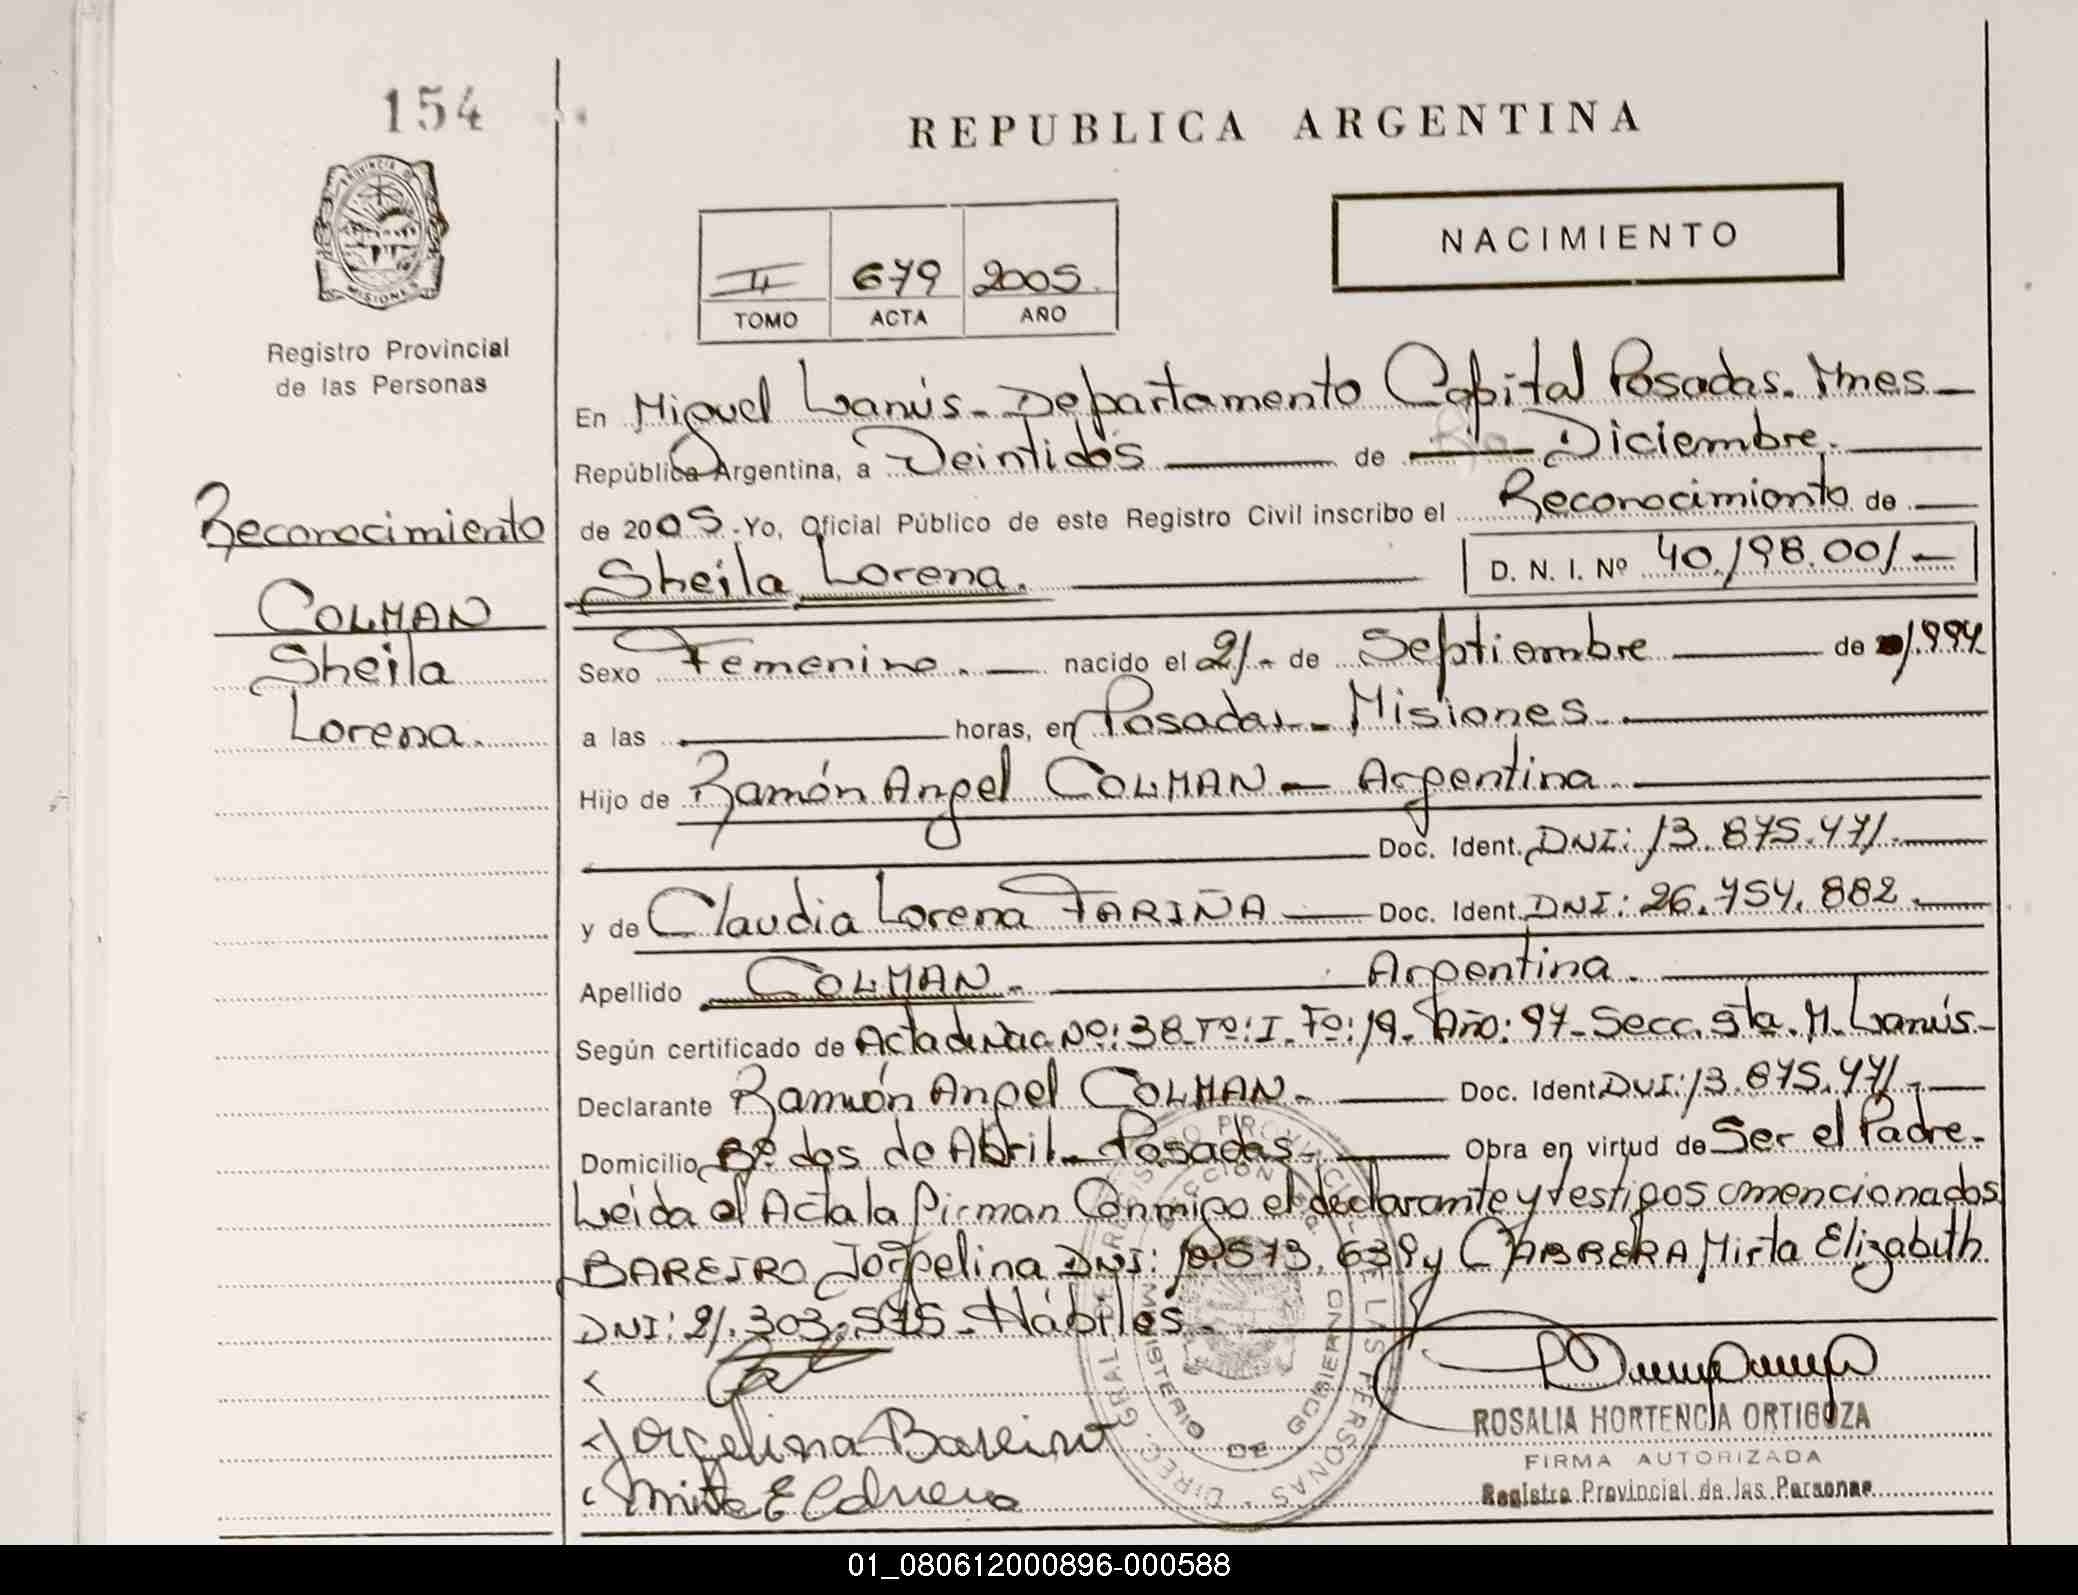 154
REPUBLICA ARGENTINA
PROVINCIA DE
MISIONES
Registro Provincial
de las Personas
II 679 2005.
TOMO ACTA AÑO
NACIMIENTO
En Miguel Lanús - Departamento Capital Posadas. Mnes -
República Argentina, a Veintidós de Diciembre.
de 2005.- Yo, Oficial Público de este Registro Civil inscribo el Reconocimiento de
Sheila Lorena. D. N. I. Nº 40.198.001.-
Reconocimiento
COLMAN
Sheila
Lorena.
Sexo Femenino. - nacido el 21.- de Septiembre de 1.994
a las horas, en Posadas - Misiones.
Hijo de Ramón Angel COLMAN - Argentina
Doc. Ident. DNI: 13.875.471.
y de Claudia Lorena FARIÑA Doc. Ident. DNI: 26.754.882.
Apellido COLMAN. Argentina.
Según certificado de Acta de Nac. Nº: 38 - Tº: I. Fº: 19. Año: 97 - Secc. 5ta. M. Lanús.-
Declarante Ramón Angel COLMAN. Doc. Ident. DNI: 13.875.471.
Domicilio Bº dos de Abril - Posadas. Obra en virtud de Ser el Padre.
Leída el Acta la firman Conmigo el declarante y testigos mencionados
BAREIRO Jorgelina DNI: 18.573.639 y CABRERA Mirta Elizabeth.
DNI: 21.303.575 - Hábiles.
Jorgelina Bareiro
Mirta E Cabrera
ROSALIA HORTENCIA ORTIGOZA
FIRMA AUTORIZADA
Registro Provincial de las Personas
DIREC. GRAL. DE REGISTRO PROVINCIAL DE LAS PERSONAS
MINISTERIO DE GOBIERNO
01_080612000896-000588